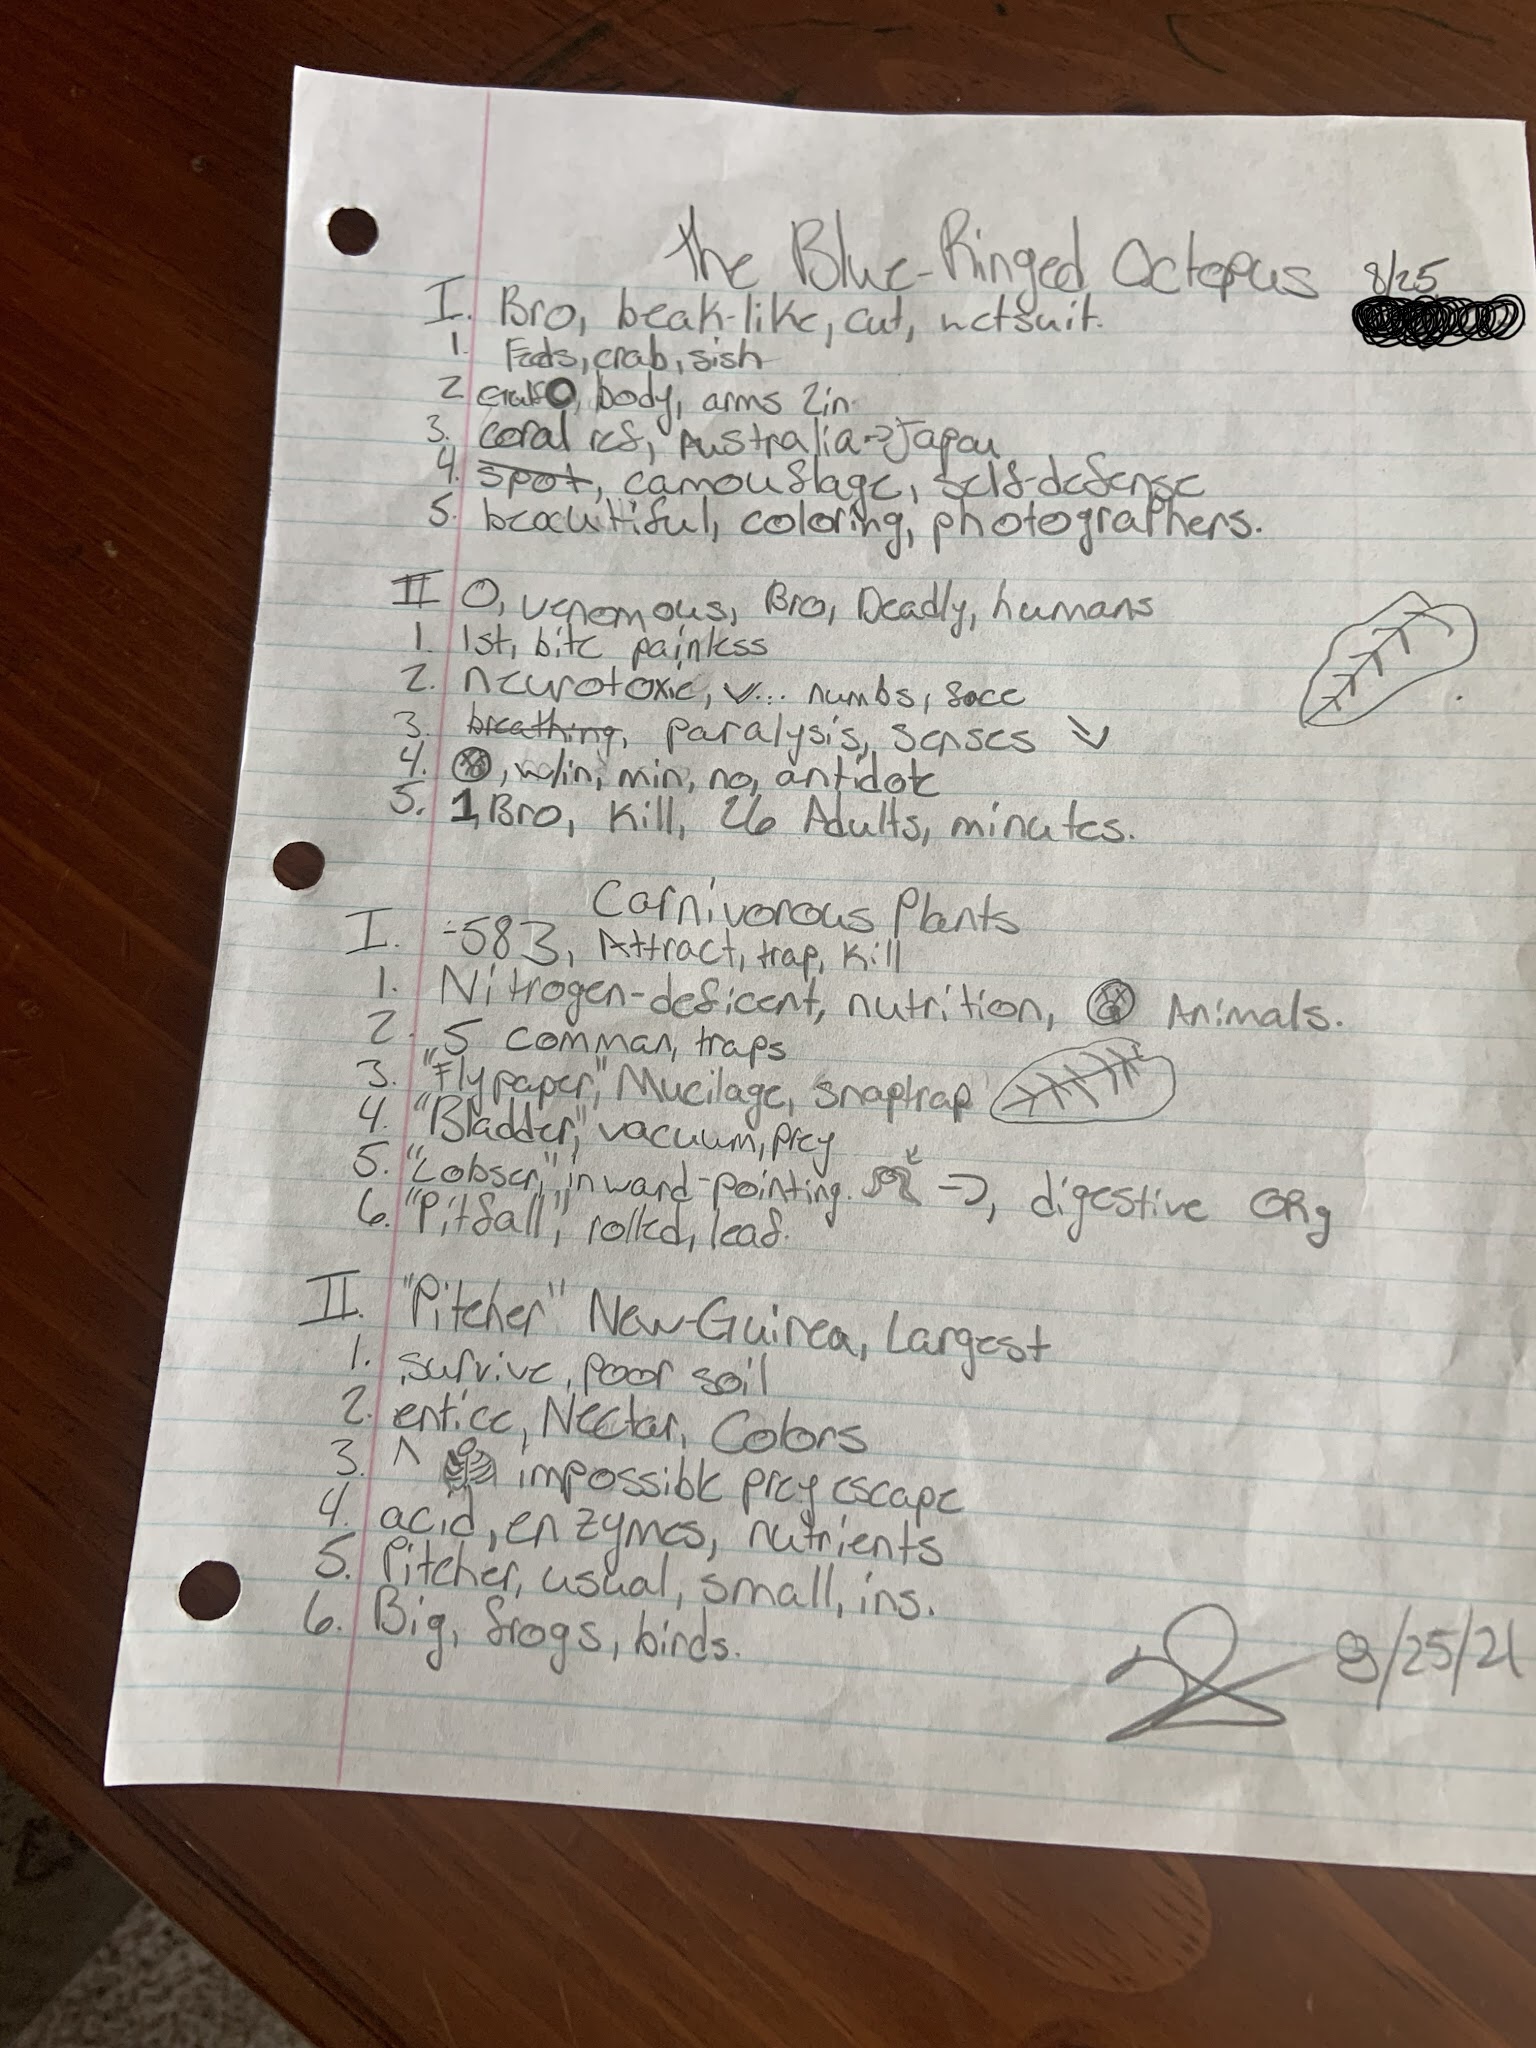 The Blue-Ringed Octopus 8/25
I. Bro, beak-like, cut, wetsuit.
1. Feeds, crab, fish
2. O, body, arms 2in
3. coral ref, Australia → Japan
4. spot, camouflage, self-defense
5. beautiful, coloring, photographers.
II O, venomous, Bro, Deadly, humans
1. 1st, bite painless
2. neurotoxic, v... numbs, face
3. breathing, paralysis, senses
4. , w/in, min, no, antidote
5. 1 Bro, Kill, 26 Adults, minutes.
Carnivorous Plants
I. -583, Attract, trap, kill
1. Nitrogen-deficent, nutrition, Animals.
2. 5 comman, traps
3. "Flypaper," Mucilage, snaptrap
4. "Bladder," vacuum, prey
5. "Lobser," inward-pointing. →, digestive ORg
6. "Pitfall", rolled, leaf.
II. "Pitcher" New-Guinea, Largest
1. survive, poor soil
2. entice, Nectar, Colors
3. ^ impossible prey escape
4. acid, enzymes, nutrients
5. Pitcher, usual, small, ins.
6. Big, frogs, birds.
8/25/21